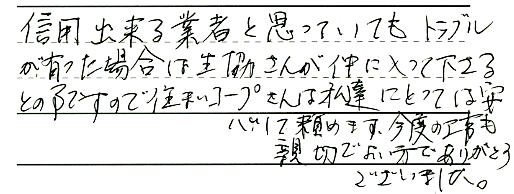 信用出来る業者と思っていてもトラブル
が有った場合は生協さんが仲に入って下さる
との事ですので住まいコープさんは私達にとっては安
心して頼めます。今度の工事も
親切でよい方でありがとう
ございました。